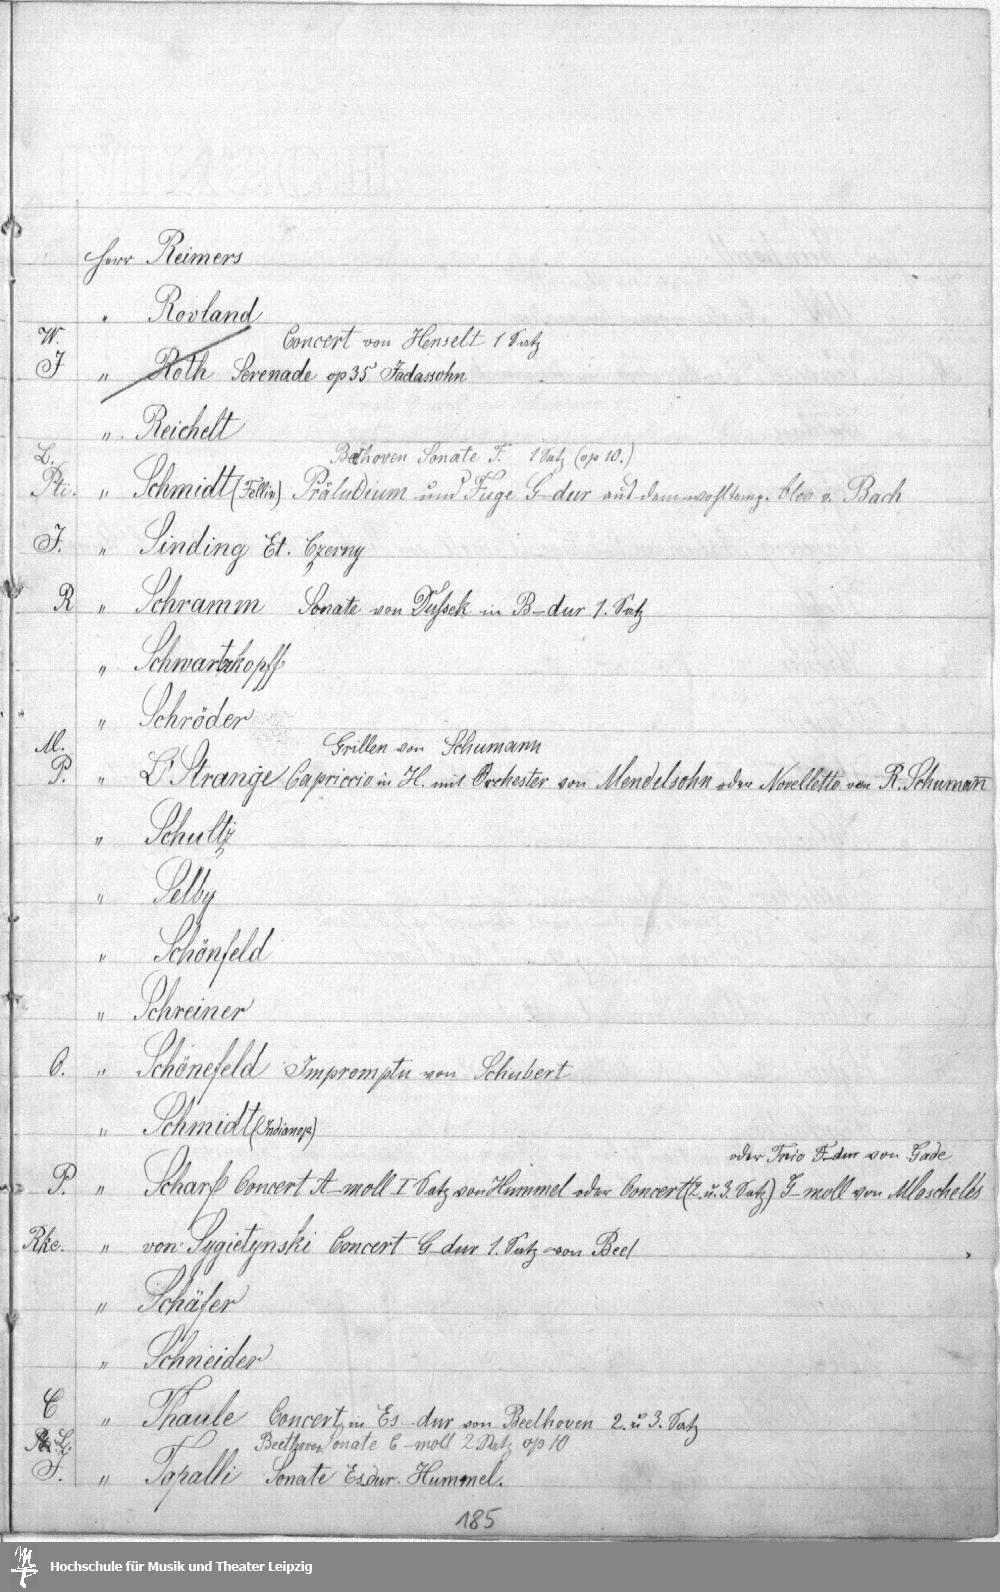 Herr Reimers
" Rovland
W. Concert von Henselt 1 Satz
J " Roth Serenade op 35 Jadassohn
" Reichelt
L. Bethoven Sonate F. 1 Satz (op 10.)
Pti. " Schmidt (Fellin) Präludium und Fuge G-dur aus dem wohltemp. Clav v. Bach
J. " Sinding Et. Czerny
R " Schramm Sonate von Dussek in B-dur 1. Satz
" Schwartzkopff
" Schröder
M. Grillen von Schumann
P. " L'Strange Capriccio in H. mit Orchester von Mendelsohn oder Novellette von R. Schumann
" Schultz
" Selby
" Schönfeld
" Schreiner
C. " Schönefeld Impromptu von Schubert
" Schmidt (Indianop)
oder Trio F-dur von Gade
P. " Scharf Concert A-moll I Satz von Hummel oder Concert (2 u. 3. Satz) G-moll von Moscheles
Rke. " von Sygietynski Concert G-dur 1. Satz von Beet
" Schäfer
" Schneider
C " Thaule Concert in Es-dur von Beethoven 2. u 3. Satz
Beethoven Sonate C-moll 2 Satz op 10
J. " Topalli Sonate Es dur. Hummel.
185
Hochschule für Musik und Theater Leipzig